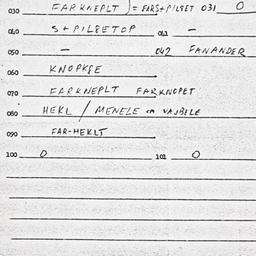 030 FARKNEPLT ) = FARS+PILBET 031 0
040 S+PILBETOP 041 —
050 — 042 FANANDER
060 KNOPKSE
070 FARKNEPLT FARKNOPET
080 HEKL / MENELE VAJBELE
090 FAR-HEKLT
100 0 101 0